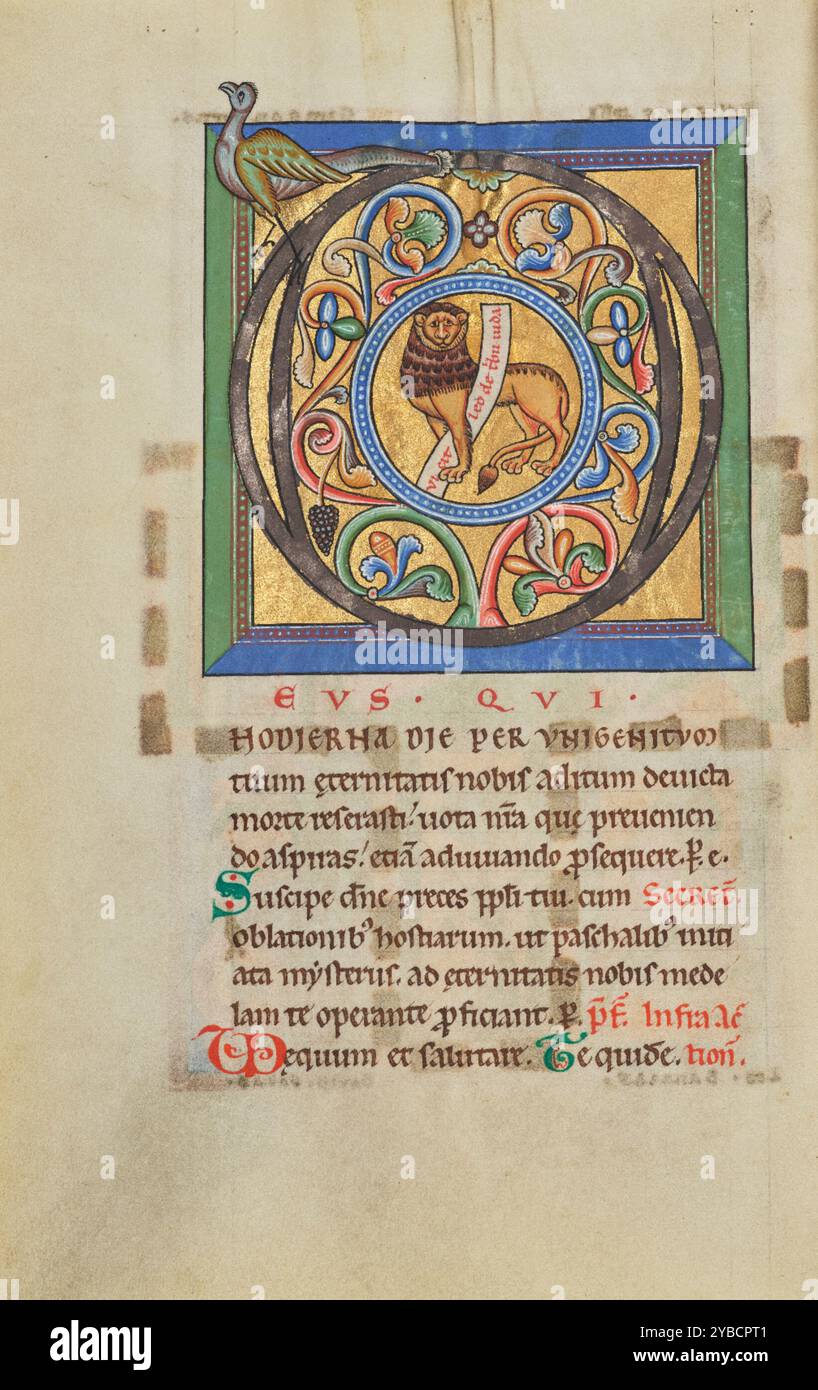 vicit leo de tbu iuda
EVS · QVI ·
HODIERNA DIE PER VNIGENITVM
tuum ęternitatis nobis aditum deuicta
morte reserasti! uota nr̄a quę preuenien
do aspiras! etiā adiuuando ꝓsequere. ꝑ e.
Suscipe dn̄e preces ppl̄i tui. cum Secret̄.
oblationibꝰ hostiarum. ut paschalibꝰ initi
ata mẏsteriis. ad ęternitatis nobis mede
lam te operante ꝓficiant. ꝑ. p̄f. Infra Ac̄
VEęquum et salutare. Te quidē. tion̄.
alamy
Image ID: 2YBCPT1
www.alamy.com